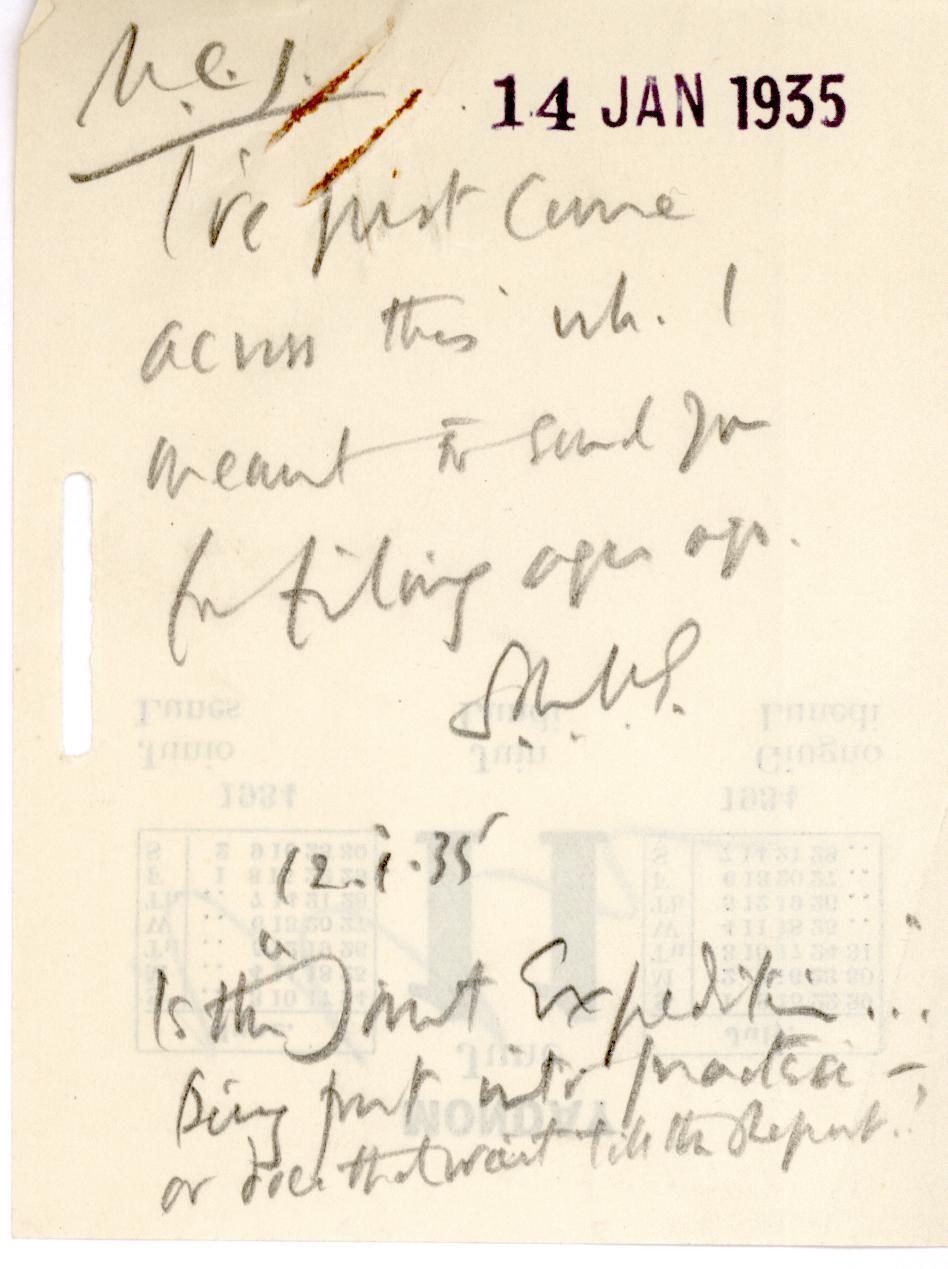 14 JAN 1935
I've just come
across this wh. I
meant to send you
for filing ages ago.
12.1.35
Is the Joint Expedition...
being put into practice –
or does that wait till the Report?
Lunes Lundi Lunedi
Junio Juin Giugno
1934 1934
11
June
MONDAY